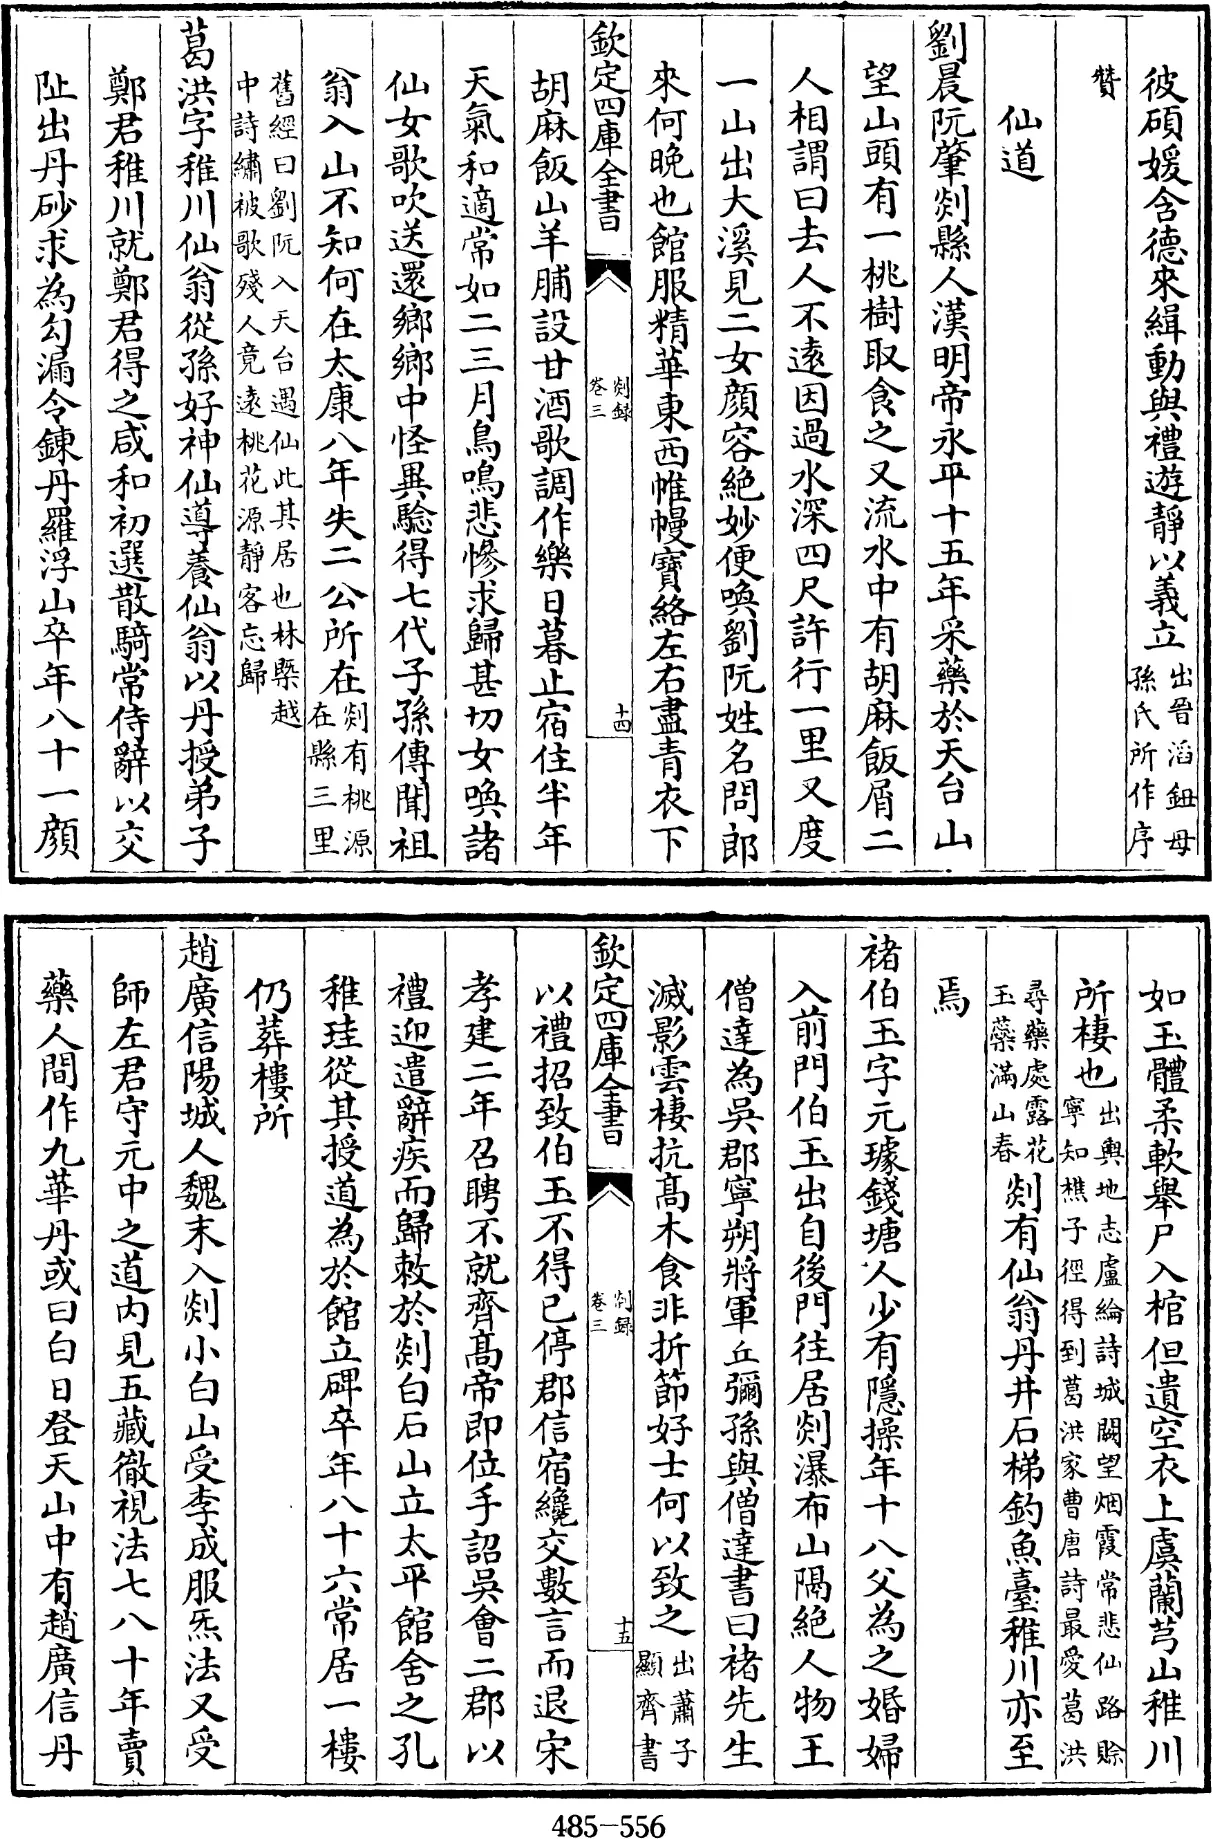 彼碩媛含德來緝動與禮遊靜以義立出晉滔鈕母孫氏所作序
贊
仙道
劉晨阮肇剡縣人漢明帝永平十五年采藥於天台山
望山頭有一桃樹取食之又流水中有胡麻飯屑二
人相謂曰去人不遠因過水深四尺許行一里又度
一山出大溪見二女顏容絕妙便喚劉阮姓名問郎
來何晚也館服精華東西帷幔寶絡左右盡青衣下
欽定四庫全書
剡録
卷三
十四
胡麻飯山羊脯設甘酒歌調作樂日暮止宿住半年
天氣和適常如二三月鳥鳴悲慘求歸甚切女喚諸
仙女歌吹送還鄉鄉中怪異驗得七代子孫傳聞祖
翁入山不知何在太康八年失二公所在剡有桃源在縣三里
舊經曰劉阮入天台遇仙此其居也林槩越
中詩繡被歌殘人竟遠桃花源靜客忘歸
葛洪字稚川仙翁從孫好神仙導養仙翁以丹授弟子
鄭君稚川就鄭君得之咸和初選散騎常侍辭以交
阯出丹砂求為勾漏令錬丹羅浮山卒年八十一顏
如玉體柔軟舉尸入棺但遺空衣上虞蘭芎山稚川
所棲也出輿地志盧綸詩城闕望烟霞常悲仙路賒寧知樵子徑得到葛洪家曹唐詩最愛葛洪
尋藥處露花玉蘂滿山春剡有仙翁丹井石梯釣魚臺稚川亦至
焉
褚伯玉字元璩錢塘人少有隱操年十八父為之婚婦
入前門伯玉出自後門往居剡瀑布山隔絕人物王
僧達為吳郡寧朔將軍丘彌孫與僧達書曰褚先生
滅影雲棲抗髙木食非折節好士何以致之出蕭子顯齊書
欽定四庫全書
剡録
卷三
十五
以禮招致伯玉不得已停郡信宿纔交數言而退宋
孝建二年召聘不就齊髙帝即位手詔吳會二郡以
禮迎遣辭疾而歸敕於剡白石山立太平館舍之孔
稚珪從其授道為於館立碑卒年八十六常居一樓
仍葬樓所
趙廣信陽城人魏末入剡小白山受李成服炁法又受
師左君守元中之道内見五藏徹視法七八十年賣
藥人間作九華丹或曰白日登天山中有趙廣信丹
485-556